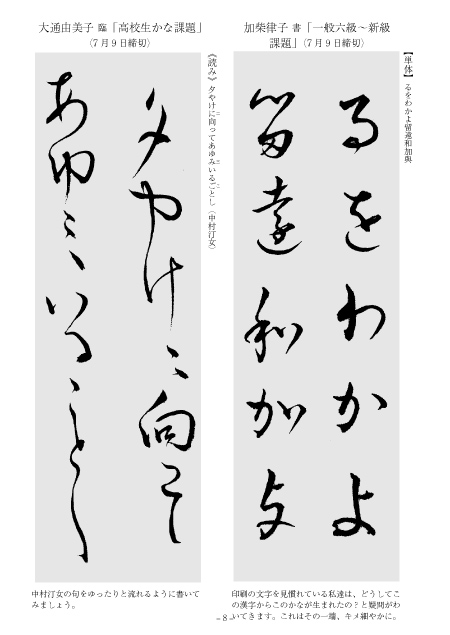 加柴律子 書「一般六級～新級
課題」(7月9日締切)
【単体】るをわかよ留遠和加與
るをわかよ
留遠和加与
印刷の文字を見慣れている私達は、どうしてこ
の漢字からこのかなが生まれたの？と疑問がわ
いてきます。これはその一端、キメ細やかに。
大通由美子 臨「高校生かな課題」
(7月9日締切)
《読み》夕やけに向ってあゆみいるごとし（中村汀女）
夕やけニ向って
あゆミいることし
中村汀女の句をゆったりと流れるように書いて
みましょう。
-8-